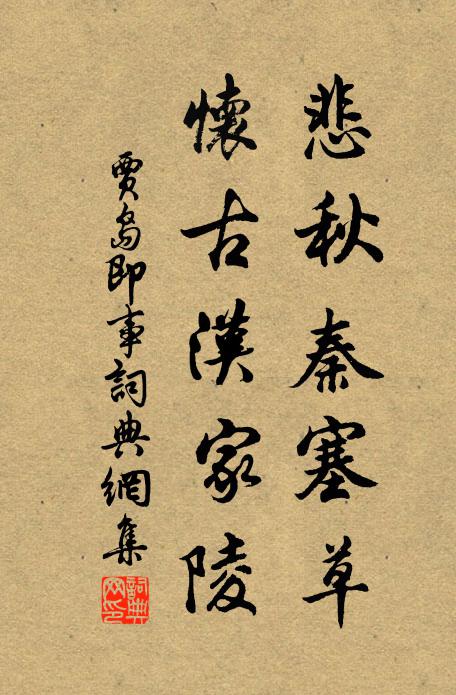 悲秋秦塞草
懷古漢家陵
賈島即事詞典網集
詞典網印